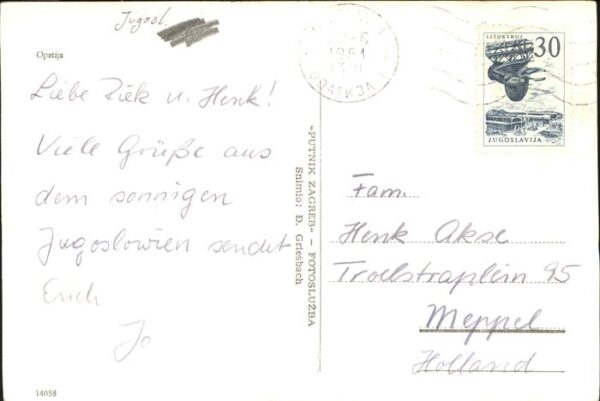 Jugosl.
Opatija
Liebe Ziek u. Henk!
Viele Grüße aus
dem sonnigen
Jugoslowien sendet
Euch
Jo
14058
»PUTNIK ZAGREB« – FOTOSLUŽBA
Snimio: Đ. Griesbach
1961
LITOSTROJ
30
JUGOSLAVIJA
Fam.
Henk Akse
Troelstraplein 95
Meppel
Holland